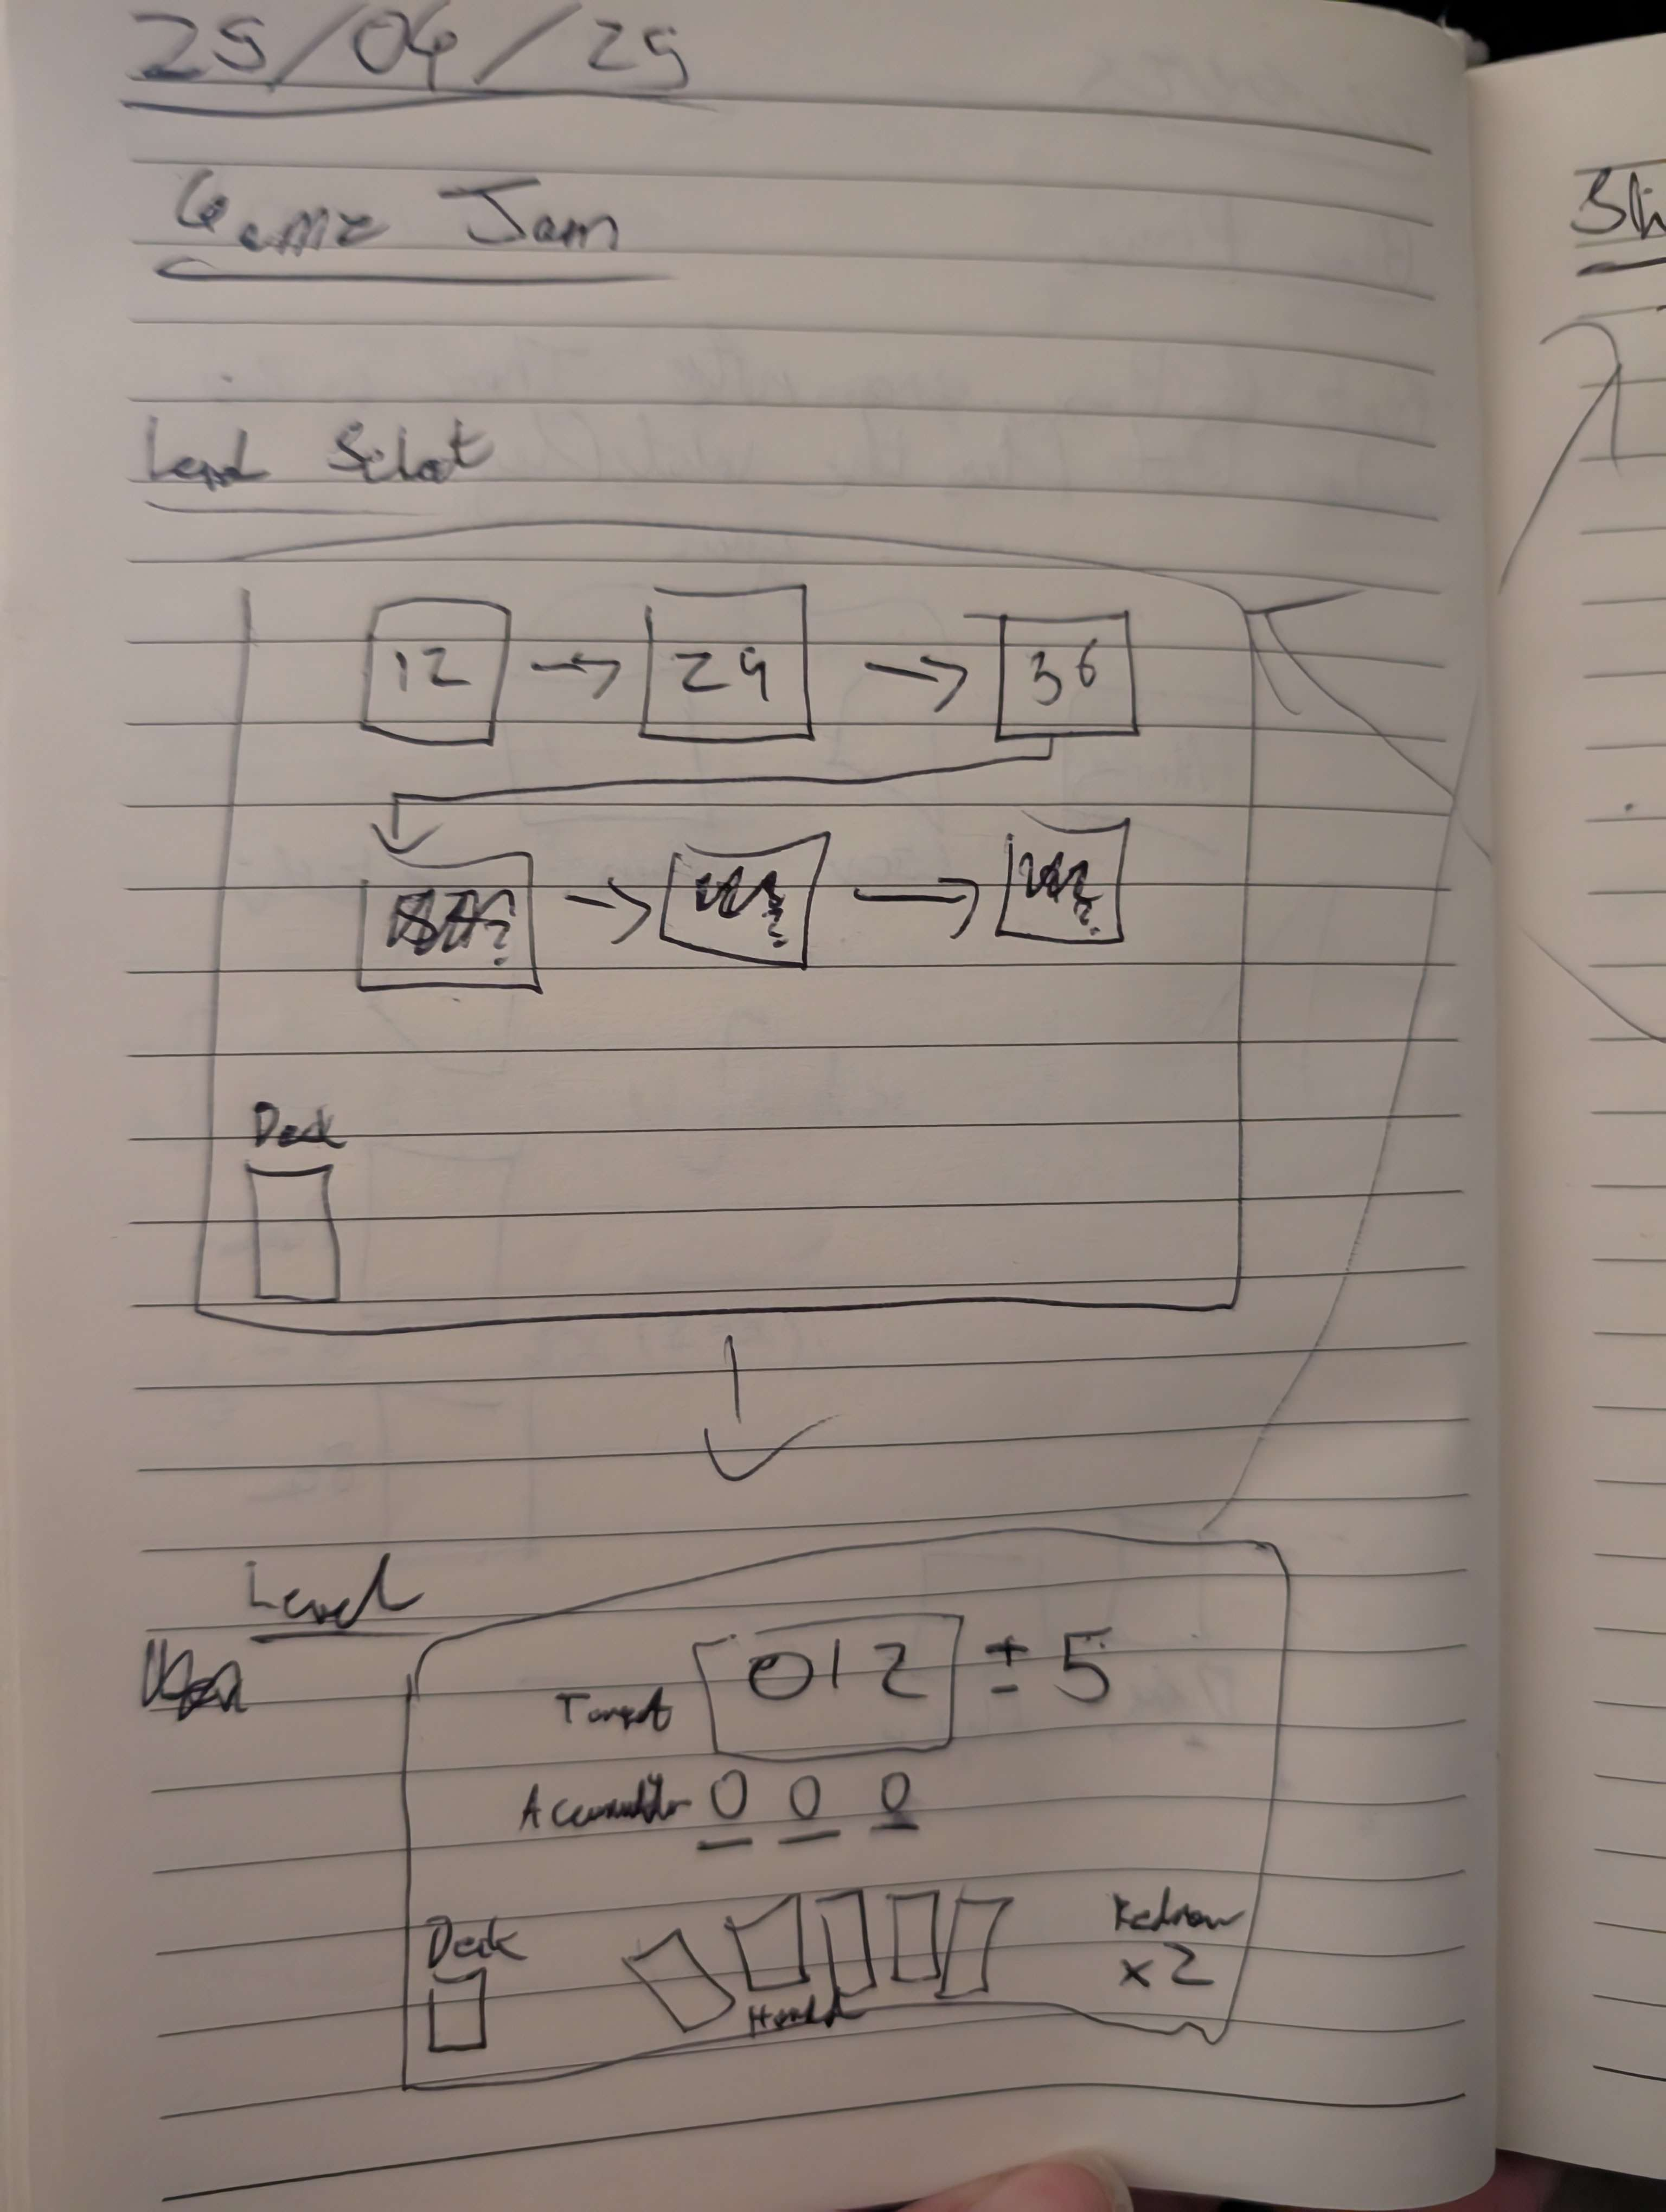 25/04/25
Game Jam
Level Select
12 → 24 → 36
? → ? → ?
Deck
Level
Target 012 ± 5
Accumulator 0 0 0
Deck
Hand
Redraw
x2